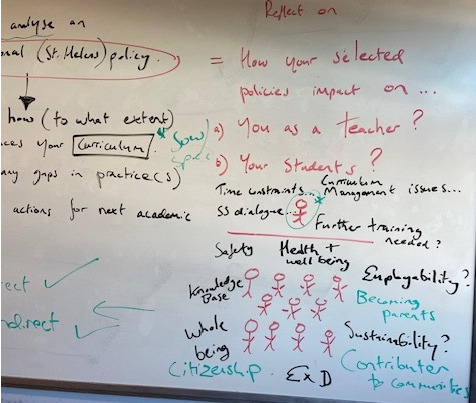 analyse an
onal (St. Helens) policy.
how (to what extent)
ces your curriculum.
any gaps in practice(s)
actions for next academic
rect
ndirect
Reflect on
= How your selected
policies impact on ...
a) You as a teacher?
b) Your students?
Time constraints... Curriculum
Management issues...
SS dialogue...
Further training
needed?
Safety Health +
well being
Knowledge
Base
Employability?
Becoming
parents
Whole
being
Sustainability?
Citizenship
ExD
Contributer
to communities